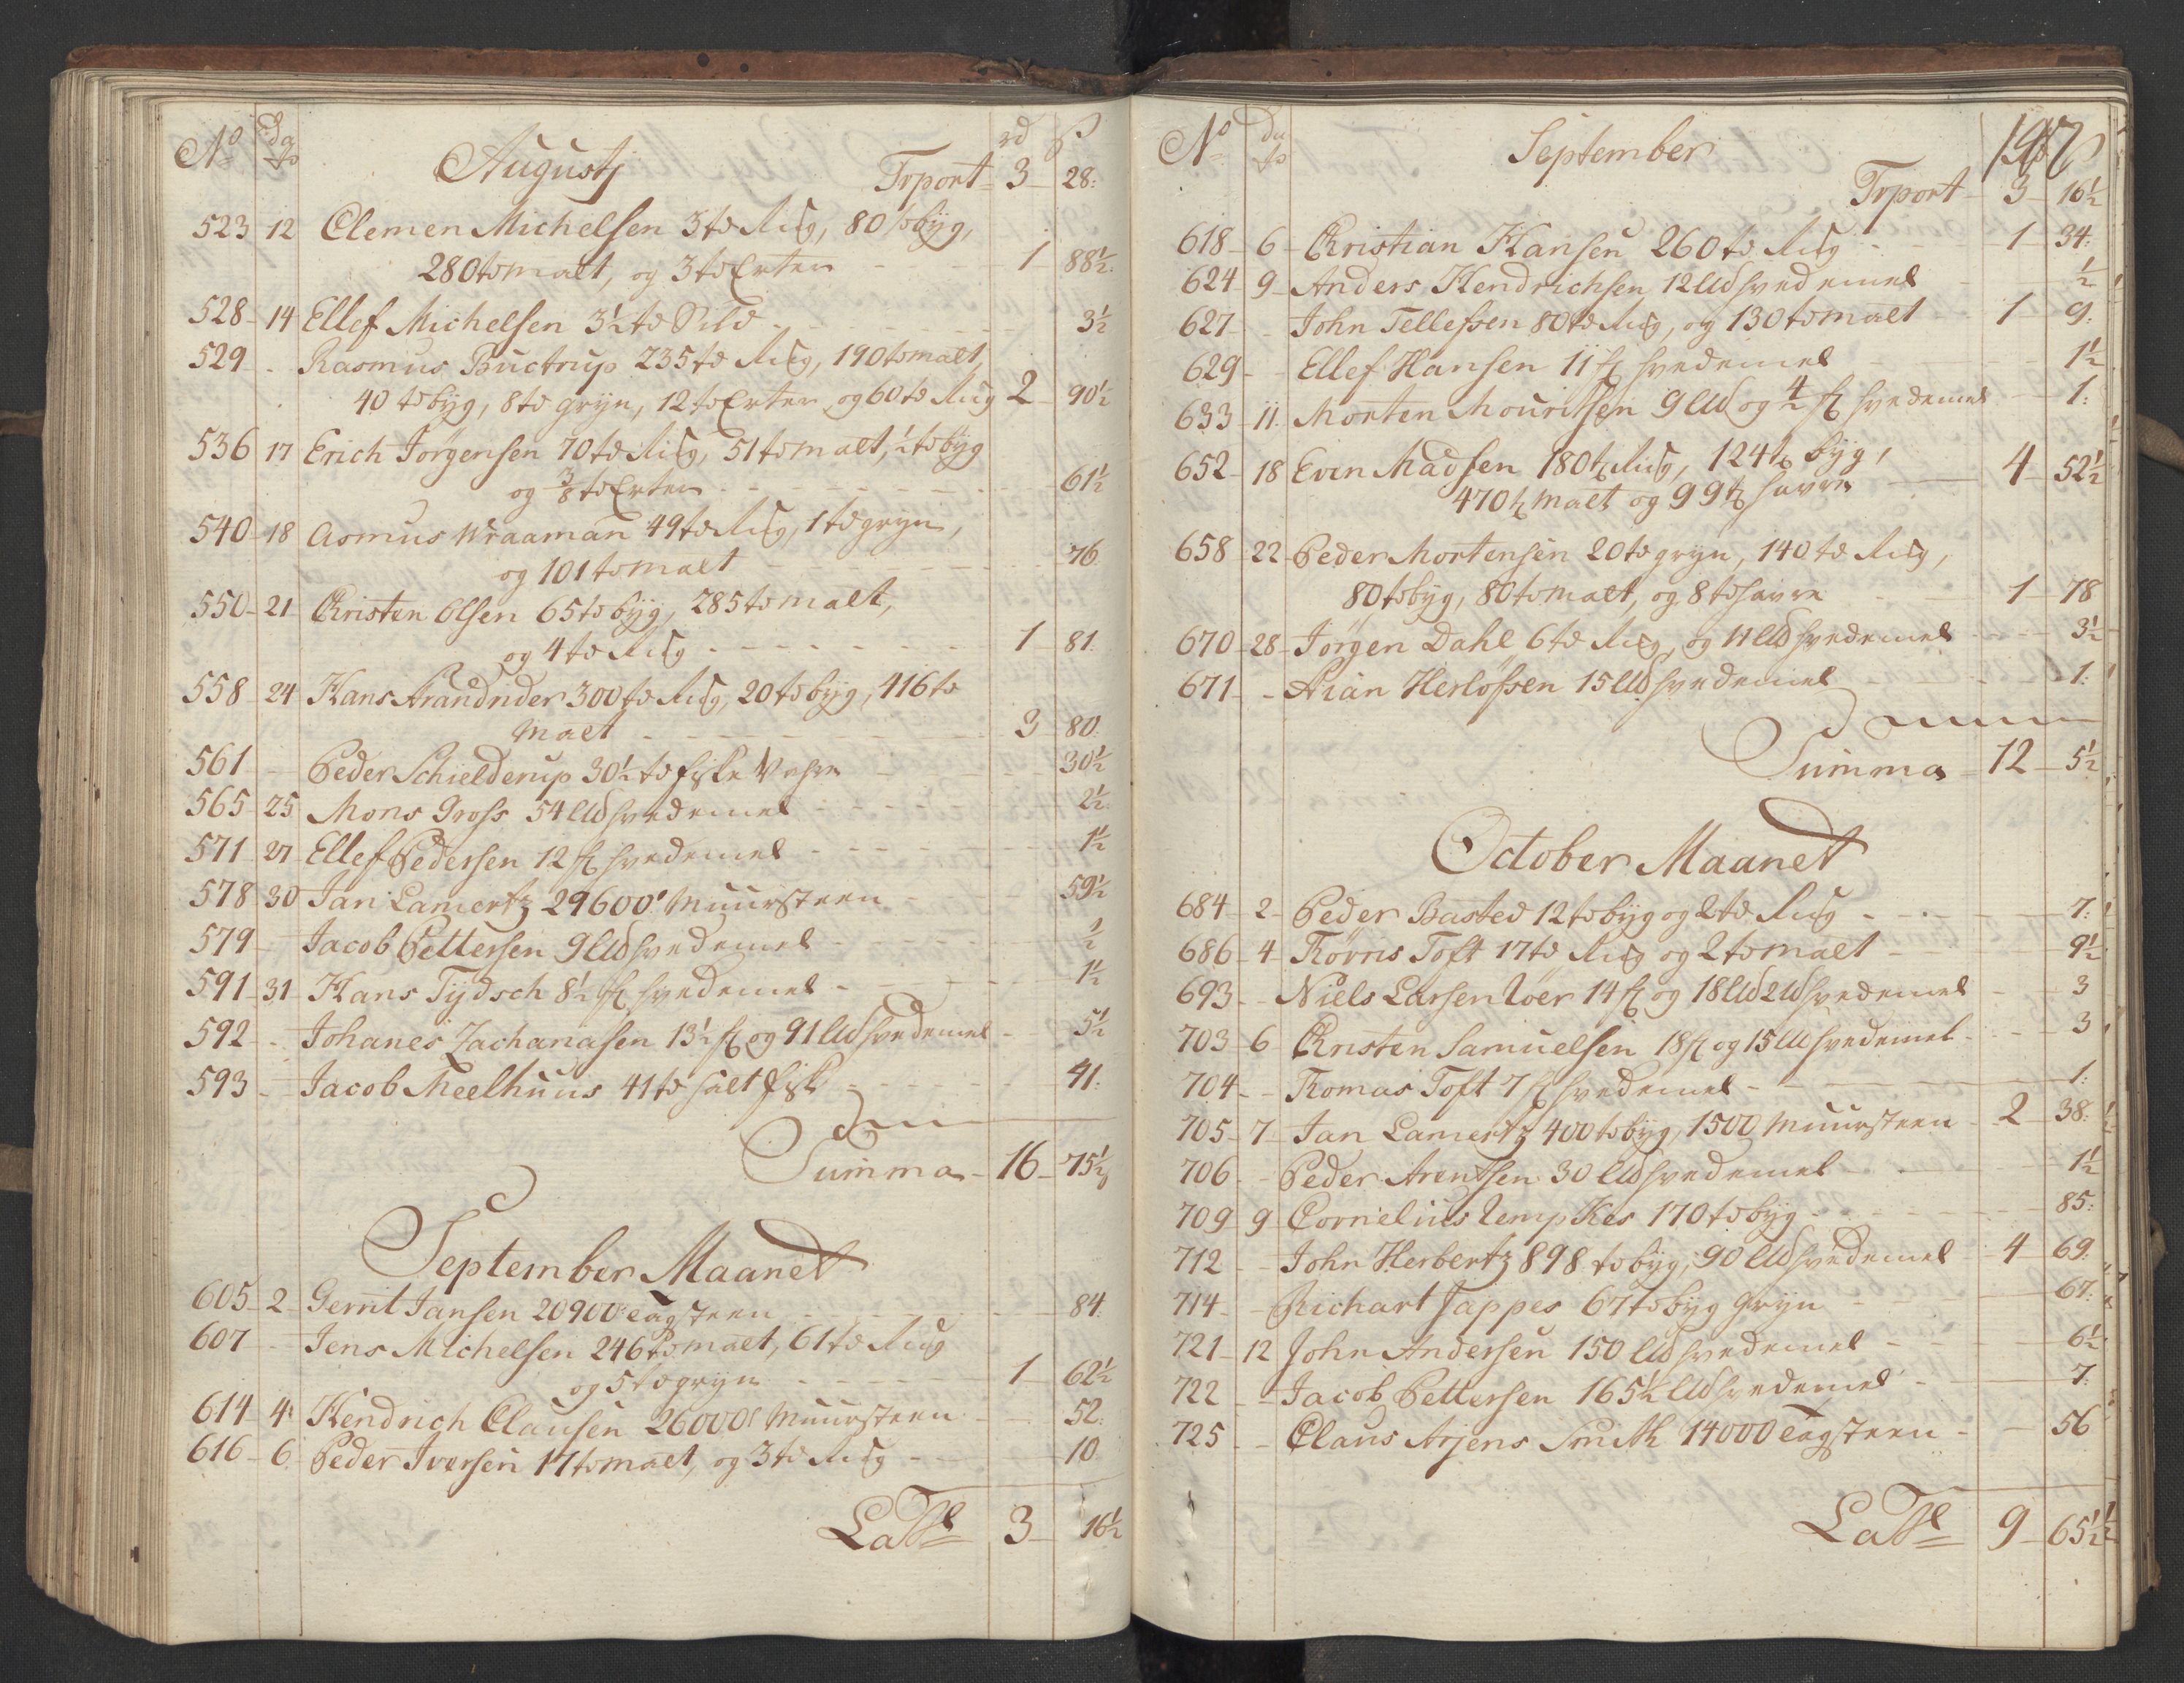 No da to Augustj rd ß
Trport 3 28:
523 12 Clemen Michelsen 3 td Rug, 80 td byg,
280 td malt, og 3 td Erter 1 88½
528 14 Ellef Michelsen 3½ td Sild 3½
529 - Rasmus Buctrup 235 td Rug, 190 td malt,
40 td byg, 8 td gryn, 12 td Erter og 60 td Rug 2 90½
536 17 Erich Jørgensen 70 td Rug, 51 td malt, ½ td byg
og 3/8 td Erter 61½
540 18 Asmus Wraaman 49 td Rug, 1 td gryn,
og 101 td malt 76
550 21 Christen Olsen 65 td byg, 285 td malt,
og 4 td Rug 1 81.
558 24 Hans 300 td Rug, 20 td byg, 416 td
malt 3 80.
561 - Peder Schielderup 30½ td fiske Vahre 30½
565 25 Mons Gross 54 Lld svedemel 2½
571 27 Ellef Pedersen 12 sk svedemel 1½
578 30 Jan Lamertz 29600 Muursteen 59½
579 Jacob Pettersen 9 Lld svedemel ½
591 31 Hans Tydsch 8½ sk svedemel 1½
592 - Johanes Zachariasen 13½ sk og 91 Lld svedemel 5½
593 - Jacob Meelhuus 41 td salt fisk 41:
Summa 16 75½
September Maanet
605 2 Gerrit Jansen 20900 tagsteen 84.
607 - Jens Michelsen 246 td malt, 61 td Rug
og 5 td gryn 1 62½
614 4 Hendrich Clausen 26000 Muursteen 52:
616 6 Peder Iversen 17 td malt, og 3 td Rug 10
Late 3 16½
No da to September 197
Trport 3 16½
618 6 Christian Hansen 260 td Rug 1 34:
624 9 Anders Hendrichsen 12 Lld svedemel ½
627 - John Tellefsen 80 td Rug, og 130 td malt 1 9:
629 - Ellef Hansen 11 sk svedemel 1½
633 11 Morten Mouritsen 9 Lld og sk svedemel 1:
652 18 Even Madsen 180 td Rug, 124 td byg,
470 td malt og 99 td havre 4 52½
658 22 Peder Mortensen 20 td gryn, 140 td Rug,
80 td byg, 80 td malt, og 8 td havre 1 78
670 28 Jørgen Dahl 6 td Rug, og 11 Lld svedemel 3½
671 - Arian Herlofsen 15 Lld svedemel 1:
Summa 12 5½
October Maanet
684 2 Peder Basted 12 td byg og 2 td Rug 7:
686 4 Tørris Toft 17 td Rug og 2 td malt 9½
693 - Niels Larsen Røer 14 sk og 18 Lld 2 ld svedemel 3
703 6 Christen Samuelsen 18 sk og 15 Lld svedemel 3
704 - Thomas Toft 7 sk svedemel 1:
705 7 Jan Lamertz 400 td byg, 1500 Muursteen 2 38:
706 - Peder Arentsen 30 Lld svedemel 1½
709 9 Cornelius Lempkes 170 td byg 85:
712 - John Herbertz 898 td byg, 90 Lld svedemel 4 69.
714 - Richart Jappes 67 td byg gryn 67:
721 12 John Andersen 150 Lld svedemel 6½
722 - Jacob Pettersen 165½ Lld svedemel 7:
725 - Claus Arjens Smith 14000 tagsteen 56
Late 9 65½